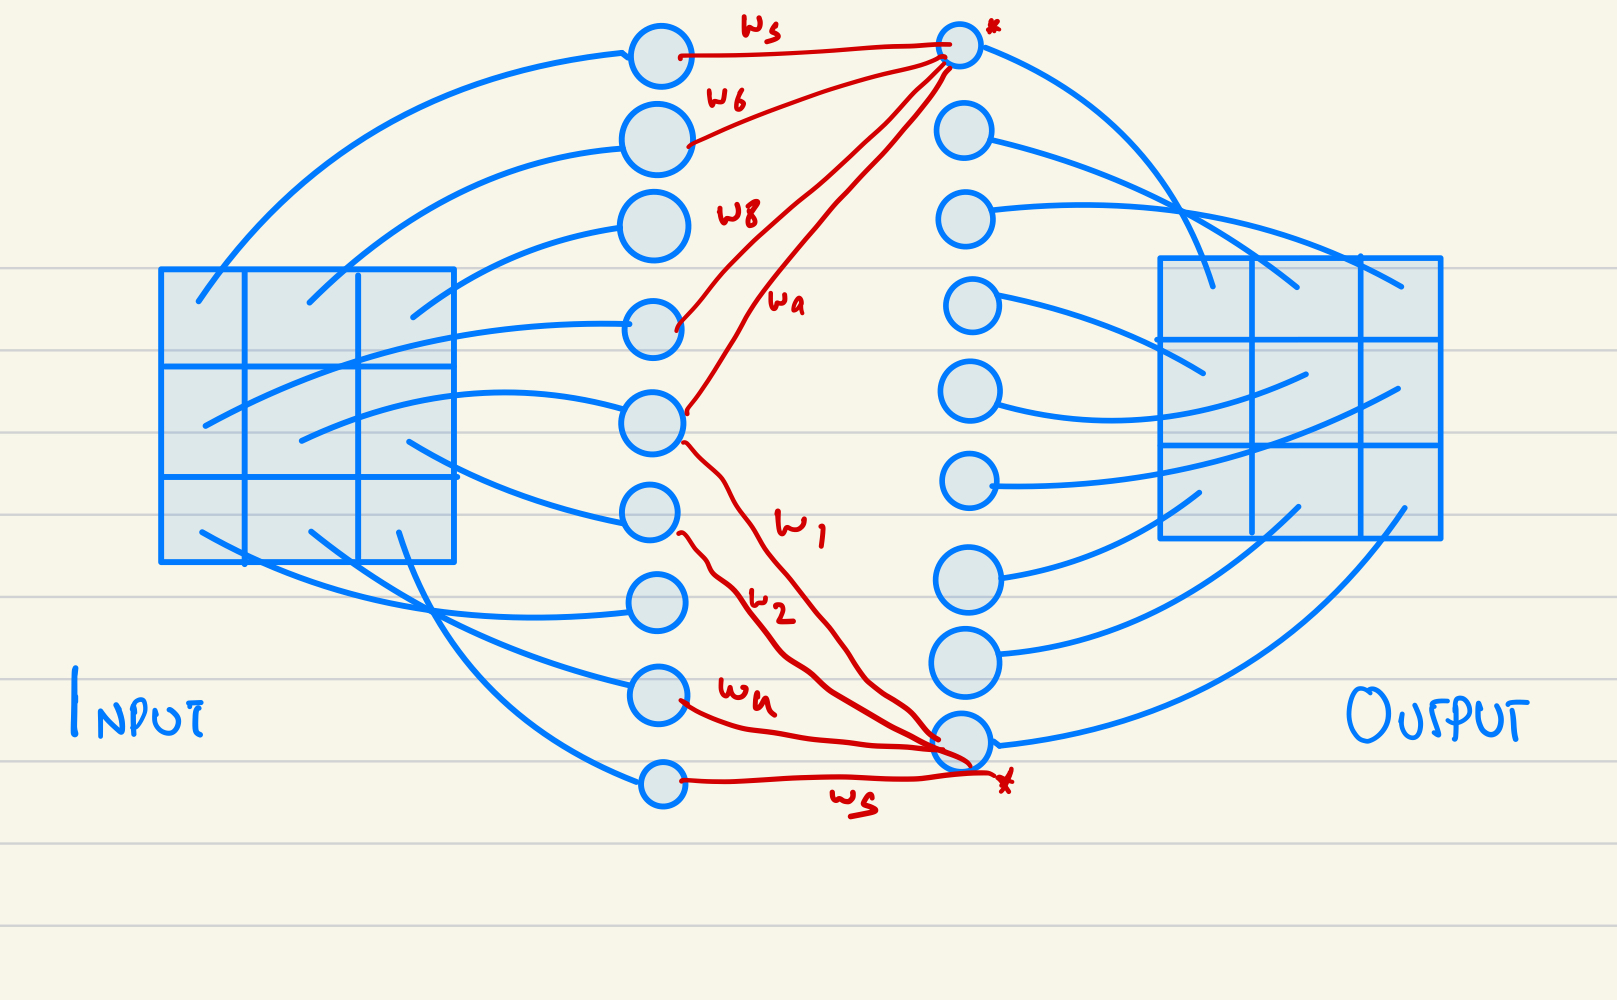 W5 *
W6
W8
W9
W1
W2
W4
INPUT
OUTPUT
*
W5